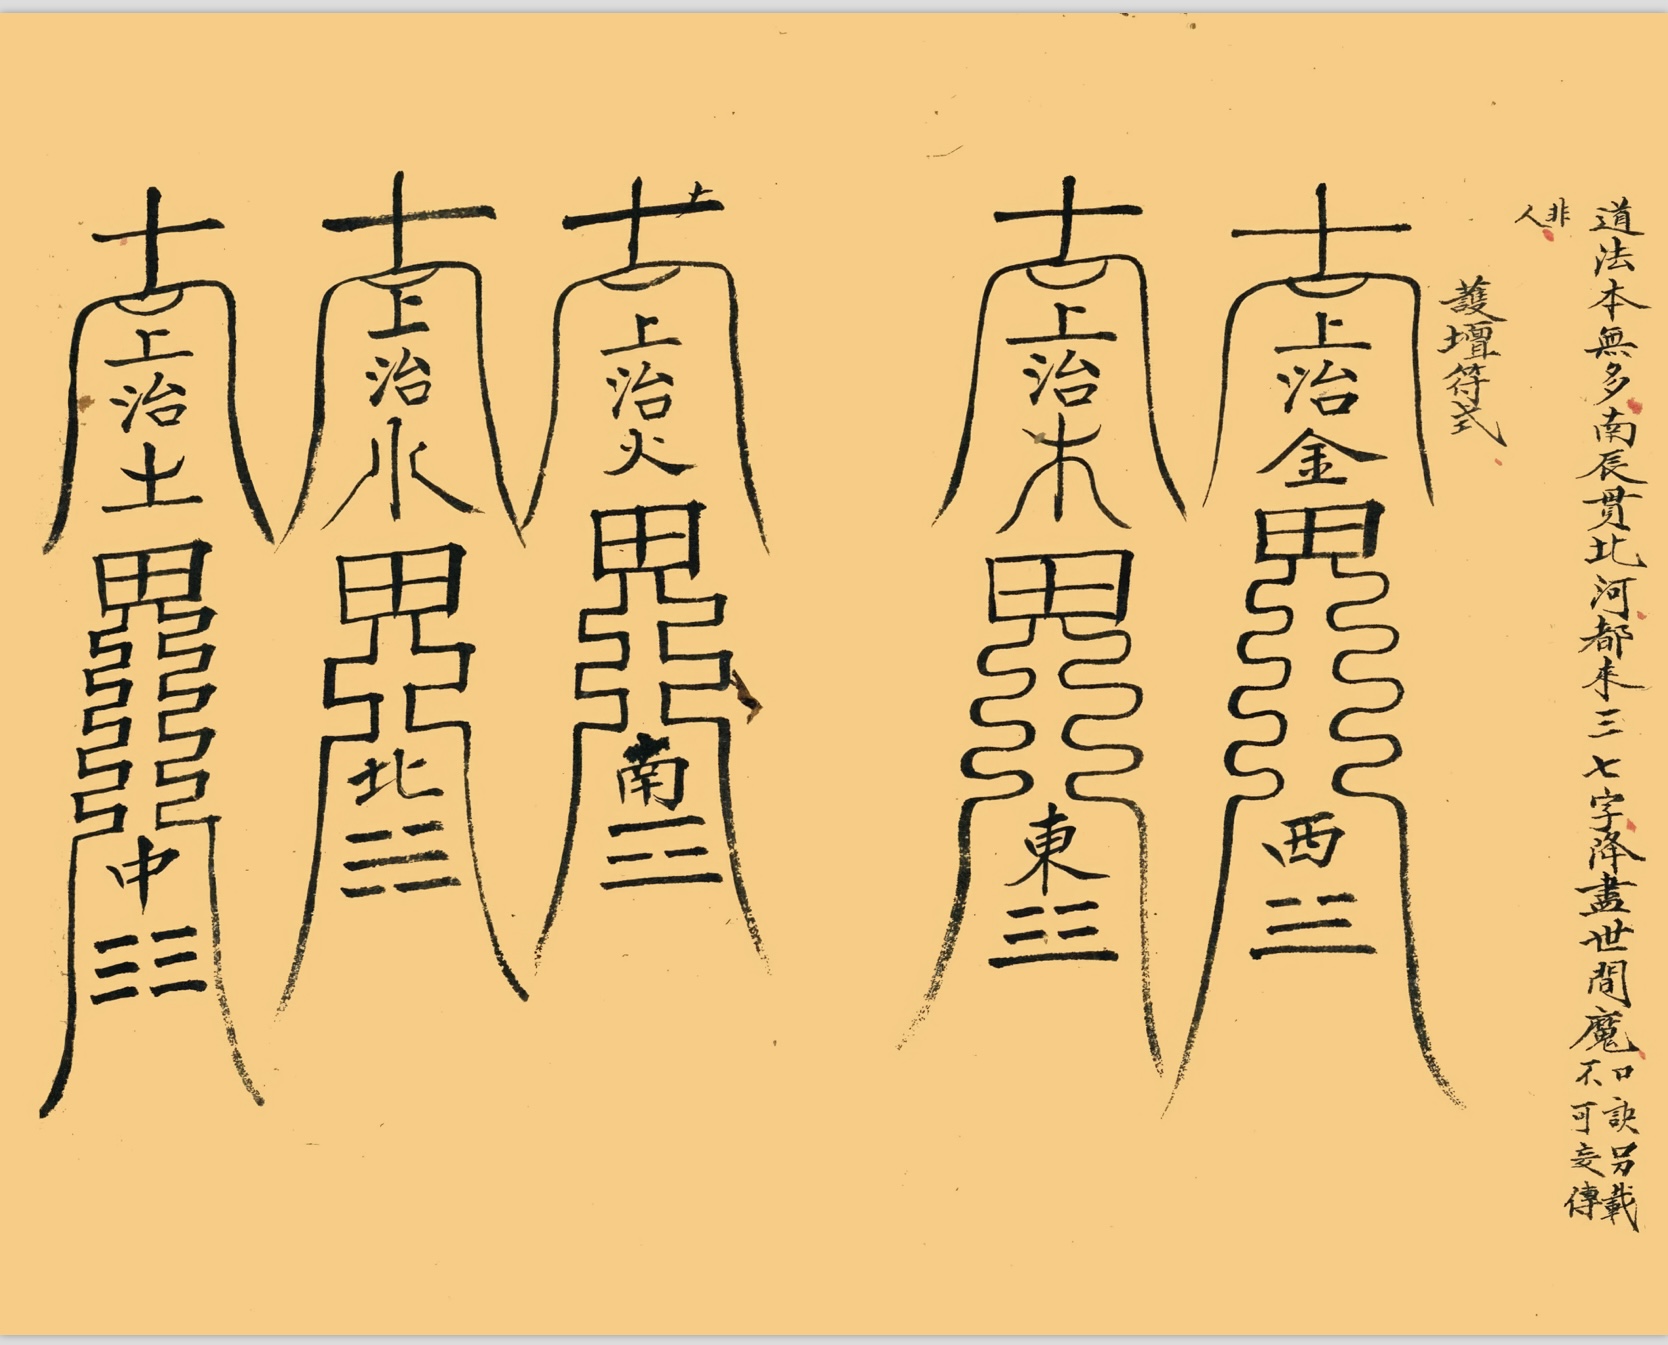 道法本無多南辰貫北河都來三七字降盡世間魔口訣另載
不可妄傳
非人
護壇符式
上治金
西
上治木
東
土
上治火
南
上治水
北
上治土
中